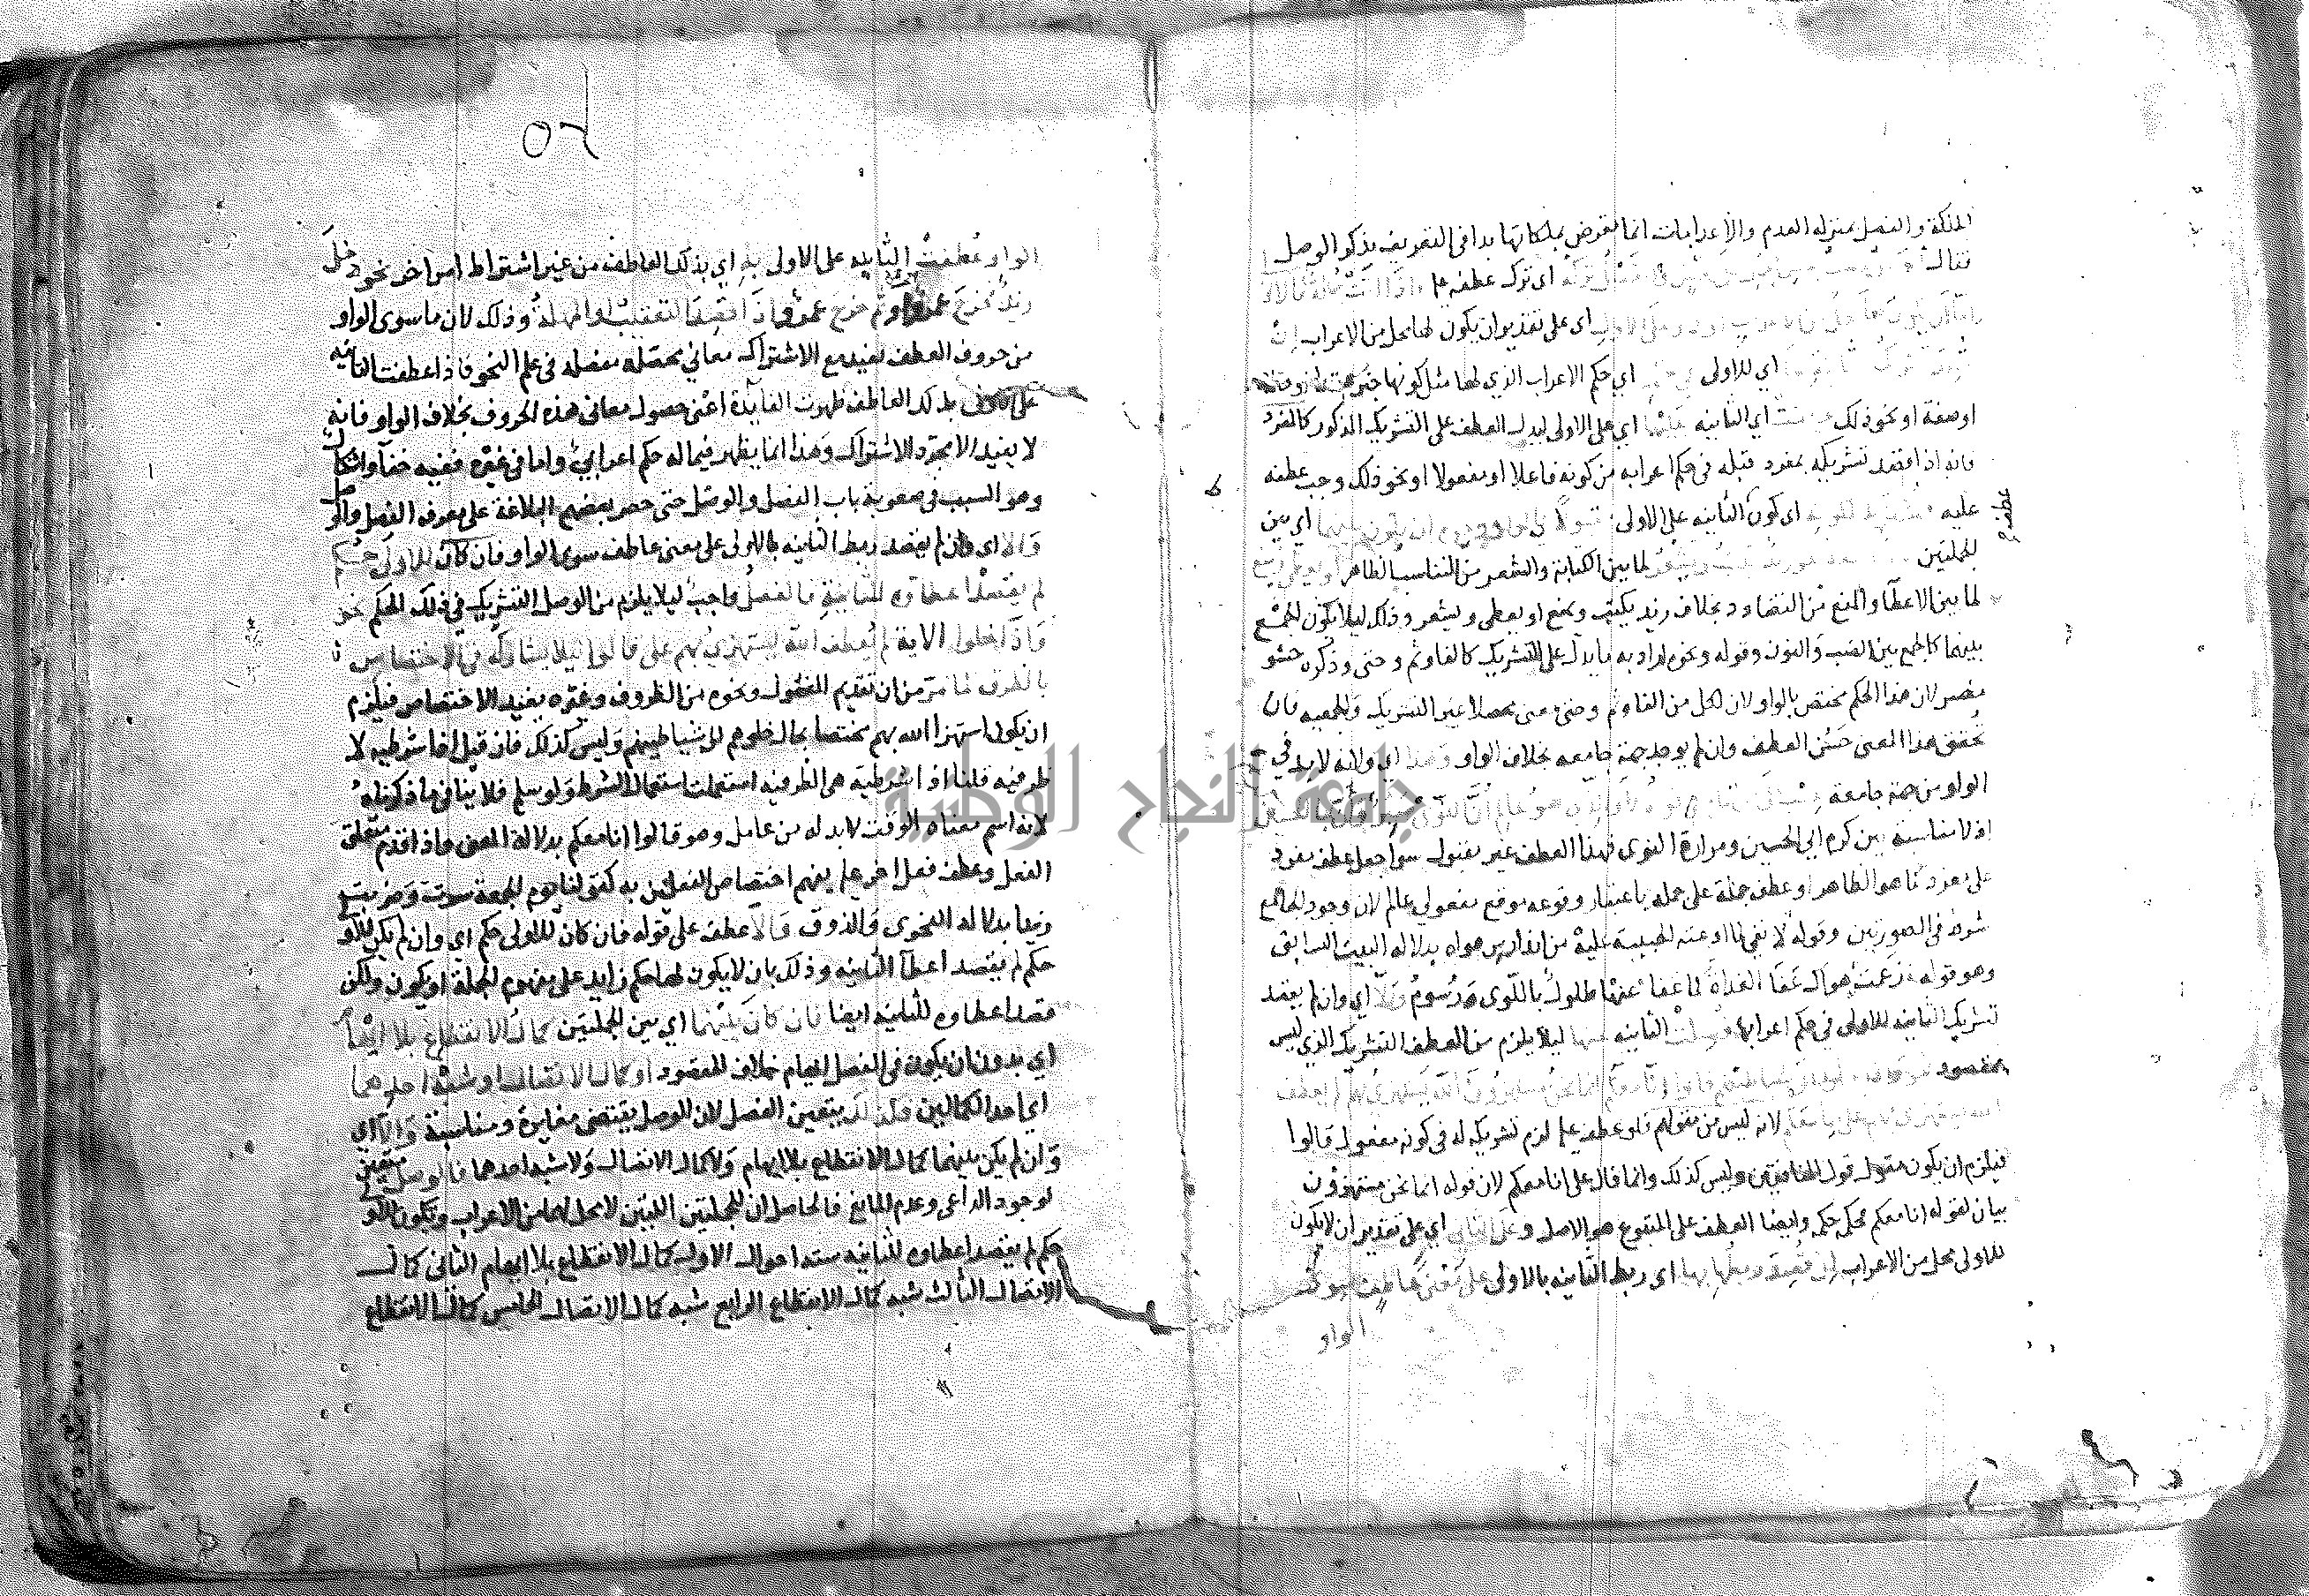 الملكة والفصل بمنزلة العدم والاعدامات انما تعرف بملكاتها بدا في التعريف بذكر الوصل
فقال تركه اي ترك عطفه عليه فاذا اتت جملة بعد جملة فالاولى
اما ان يكون لها محل من الاعراب اولا وعلى الاول اي على تقدير ان يكون لها محل من الاعراب ان
قصد تشريك الثانية لها اي للاولى في حكمه اي حكم الاعراب الذي لها مثل كونها خبر مبتدا
اوصفة او نحو ذلك عطفت اي الثانيه عليها اي على الاولى ليدل العطف على التشريك المذكور كالمفرد
فانه اذا قصد تشريكه بمفرد قبله في حكم اعرابه من كونه فاعلا او مفعولا او نحو ذلك وجب عطفه
عليه فشرط كونه اي كون الثانيه على الاولى مقبولا بالواو ونحوه ان يكون بينهما اي بين
الجملتين جهة جامعة نحو زيد يكتب ويشعر لما بين الكتابة والشعر من التناسب الظاهر او يعطى ويمنع
لما بين الاعطا والمنع من التضاد بخلاف زيد يكتب ويمنع او يعطى ويشعر وذلك ليلا يكون الجمع
بينهما كالجمع بين الضب والنون وقوله ونحوه اراد به ما يدل على التشريك كالفا وثم وحتى وذكره حشو
مفسر لان هذا الحكم مختص بالواو لان لكل من الفا وثم وحتى معنى محصلا غير التشريك والجمعيه فان
تحقق هذا المعنى حسن العطف وان لم يوجد جهة جامعه بخلاف الواو ولهذا اي ولانه لا بد في
الواو من جهة جامعة عيب على ابي تمام قوله لا والذي هو عالم ان النوى صبر وان ابا الحسين
اذ لا مناسبة بين كرم ابي الحسين ومرارة النوى فهذا العطف غير مقبول سوا جعل عطف مفرد
على مفرد كما هو الظاهر او عطف جملة على جمله باعتبار وقوعه موقع مفعولي عالم لان وجود الجامع
شرط في الصورتين وقوله لا نفي لما ادعته الحبيبة عليه من اندراس هواه بدلالة البيت السابق
وهو قوله زعمت هواك عفا الغداة كما عفا عنها طلول باللوى ورسوم والا اي وان لم يقصد
تشريك الثانيه للاولى في حكم اعرابها فصلت الثانيه عنها ليلا يلزم من العطف التشريك الذي ليس
بمقصود نحو واذا خلوا الى شياطينهم قالوا انا معكم انما نحن مستهزؤن الله يستهزئ بهم لم يعطف
الله يستهزئ بهم على انا معكم لانه ليس من مقولهم فلو عطف عليه لزم تشريكه له في كونه مفعول قالوا
فيلزم ان يكون مقول قول المنافقين وليس كذلك وانما قال على انا معكم لان قوله انما نحن مستهزؤن
بيان لقوله انا معكم فحكمه حكمه وايضا العطف على المتبوع هو الاصل وعلى الثاني اي على تقدير ان لا يكون
للاولى محل من الاعراب ان قصد ربطها بها اي ربط الثانيه بالاولى على معنى عاطف سوى
الواو
٥٢
الواو عطفت الثانيه على الاولى به اي بذلك العاطف من غير اشتراط امر اخر نحو دخل
زيد فخرج عمرو او ثم خرج عمرو اذا قصد التعقيب او المهلة وذلك لان ما سوى الواو
من حروف العطف يفيد مع الاشتراك معاني محصله مفصله في علم النحو فاذا عطفت الثانيه
على الاولى بذلك العاطف ظهرت الفايدة اعنى حصول معانى هذه الحروف بخلاف الواو فانه
لا يفيد الا مجرد الاشتراك وهذا انما يظهر فيما له حكم اعرابي واما في غيره ففيه خفا واشكال
وهو السبب في صعوبة باب الفصل والوصل حتى حصر بعضهم البلاغة على معرفة الفصل والوصل
والا اي وان لم يقصد ربط الثانيه بالاولى على معنى عاطف سوى الواو فان كان للاولى حكم
لم يقصد اعطاؤه للثانية فالفصل واجب ليلا يلزم من الوصل التشريك في ذلك الحكم نحو
واذا خلوا الاية لم يعطف الله يستهزئ بهم على قالوا ليلا يشاركه في الاختصاص
بالظرف لما مر من ان تقديم المفعول ونحوه من الظروف وغيره يفيد الاختصاص فيلزم
ان يكون استهزا الله بهم مختصا بحال خلوهم الى شياطينهم وليس كذلك فان قيل اذا شرطيه لا
ظرفيه قلنا اذا الشرطيه هي الظرفيه استعملت استعمال الشرط ولو سلم فلا ينافى ما ذكرناه
لانه اسم معناه الوقت لا بد له من عامل وهو قالوا انا معكم بدلالة المعنى واذا قدم متعلق
الفعل وعطف فعل اخر عليه يفهم اختصاص الفعلين به كقولنا يوم الجمعة سرت وضربت
زيدا بدلالة الفحوى والذوق والا عطف على قوله فان كان للاولى حكم اي وان لم يكن للاولى
حكم لم يقصد اعطا الثانيه وذلك بان لا يكون لها حكم زايد على مفهوم الجملة او يكون ولكن
قصد اعطاؤه للثانيه ايضا فان كان بينهما اي بين الجملتين كمال الانقطاع بلا ايهام
اي بدون ان يكون في الفصل ايهام خلاف المقصود او كمال الاتصال او شبه احدهما
اي احد الكمالين فكذلك يتعين الفصل لان الوصل يقتضى مغايرة ومناسبة والا اي
وان لم يكن بينهما كمال الانقطاع بلا ايهام ولا كمال الاتصال ولا شبه احدهما فالوصل متعين
لوجود الداعى وعدم المانع فالحاصل ان للجملتين اللتين لا محل لهما من الاعراب ويكون للاولى
حكم لم يقصد اعطاؤه للثانيه ستة احوال الاول كمال الانقطاع بلا ايهام الثانى كمال
الاتصال الثالث شبه كمال الانقطاع الرابع شبه كمال الاتصال الخامس كمال الانقطاع
جامعة النجاح الوطنية